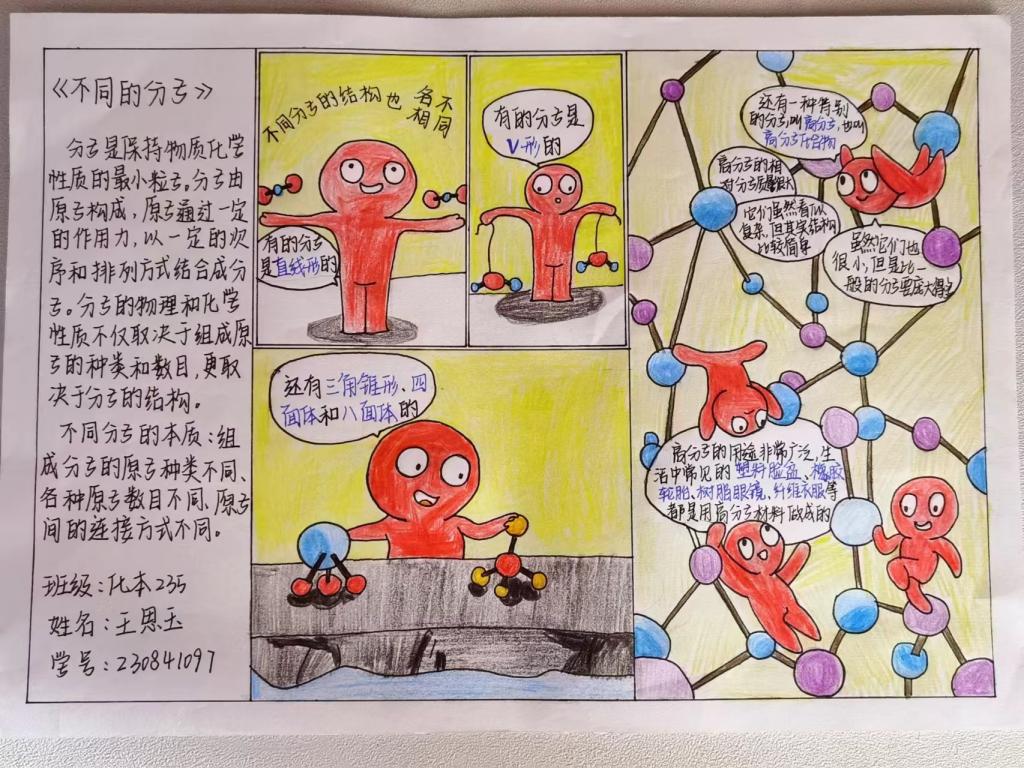 《不同的分子》
分子是保持物质化学
性质的最小粒子。分子由
原子构成，原子通过一定
的作用力，以一定的次
序和排列方式结合成分
子。分子的物理和化学
性质不仅取决于组成原
子的种类和数目，更取
决于分子的结构。
不同分子的本质：组
成分子的原子种类不同、
各种原子数目不同、原子
间的连接方式不同。
班级：化本235
姓名：王恩玉
学号：230841097
不同分子的结构也各不
相同
有的分子
是直线形的
有的分子是
V-形的
还有三角锥形、四
面体和八面体的
还有一种特别
的分子,叫高分子,也叫
高分子化合物
高分子的相
对分子质量很大
它们虽然看似
复杂,但其实结构
比较简单
虽然它们也
很小,但是比一
般的分子要庞大得多
高分子的用途非常广泛,生
活中常见的塑料脸盆、橡胶
轮胎、树脂眼镜、纤维衣服等
都是用高分子材料做成的